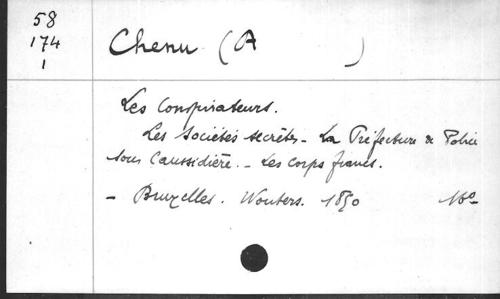 58
174
1
Chenu (A )
Les Conspirateurs.
Les Sociétés secrètes - La Préfecture de Police
sous Caussidière. - Les corps francs.
- Bruxelles. Wouters. 1850 16°